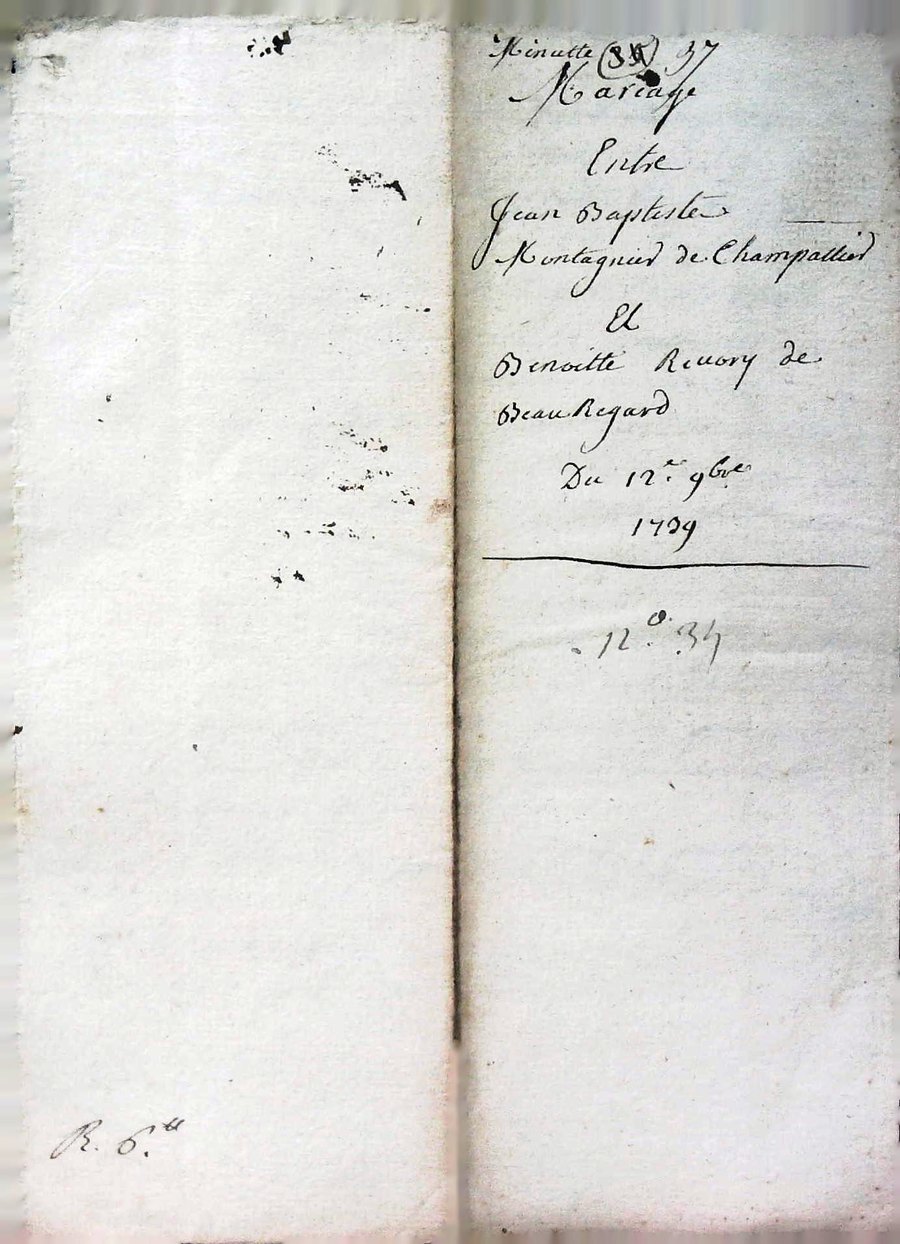 Minutte (34) 37
Mariage
Entre
Jean Baptiste
Montagnier de Champallier
Et
Benoitte Reuory de
BeauRegard
Du 12e. 9bre
1739
No. 34
R. 6.tt